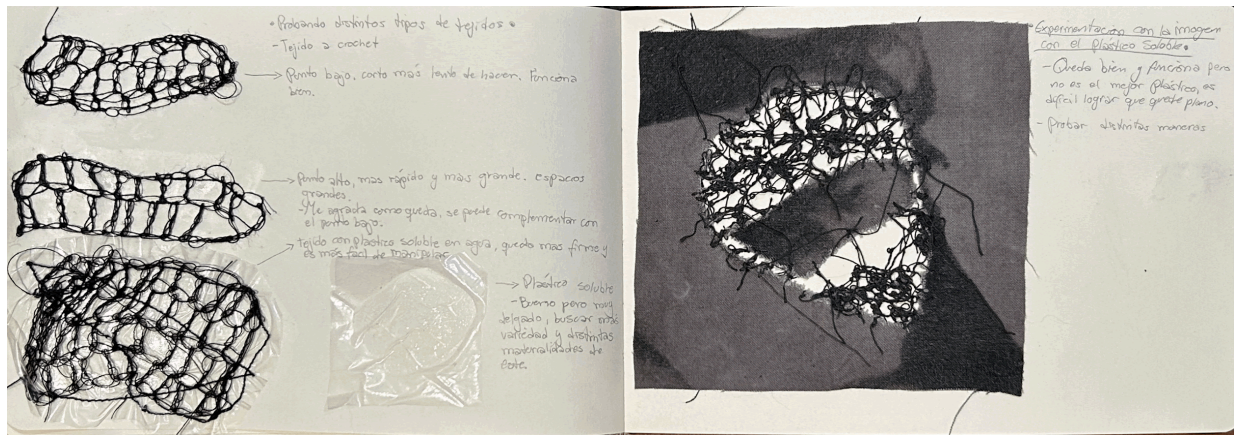 • Probando distintos tipos de tejidos •
- Tejido a crochet
→ Punto bajo, corto más lento de hacer. Funciona
bien.
→ Punto alto, mas rápido y mas grande. espacios
grandes.
- Me agrada como queda, se puede complementar con
el punto bajo.
→ Tejido con plastico soluble en agua, quedo mas firme y
es más fácil de manipular
→ Plástico soluble
- Bueno pero muy
delgado, buscar más
variedad y distintas
materialidades de
este.
• Experimentación con la imagen
con el Plástico Soluble •
- Queda bien y funciona pero
no es el mejor plástico, es
difícil lograr que quede plano.
- Probar distintas maneras